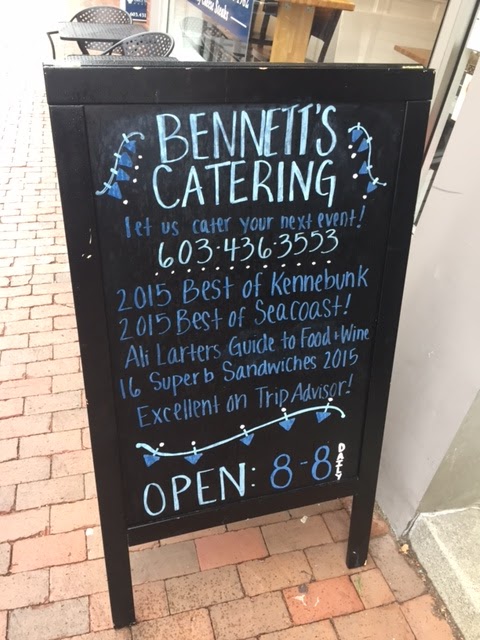 BENNETT'S
CATERING
let us cater your next event!
603·436·3553
2015 Best of Kennebunk
2015 Best of Seacoast!
Ali Larters Guide to Food + Wine
16 Superb Sandwiches 2015
Excellent on Trip Advisor!
OPEN: 8-8 DAILY